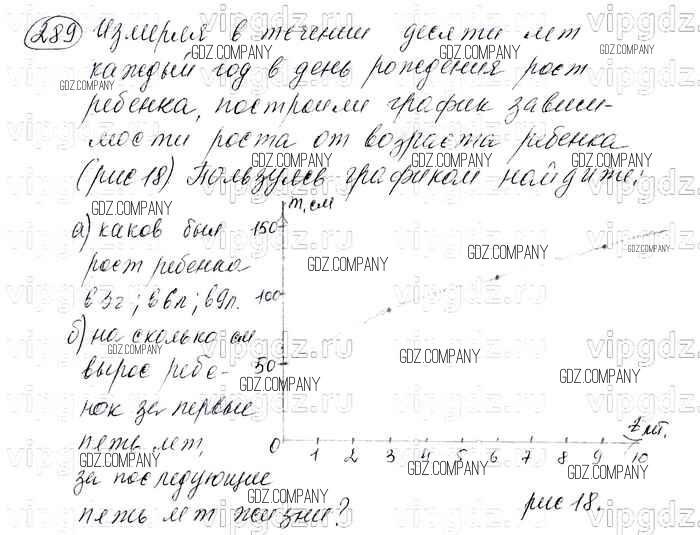 289 Измеряя в течении десяти лет
каждый год в день рождения рост
ребенка, построили график зависи-
мости роста от возраста ребенка
(рис 18) Пользуясь графиком найдите:
а) каков был
рост ребенка
в 3г; в 6л; в 9л.
б) на сколько см
вырос ребе-
нок за первые
пять лет,
за последующие
пять лет жизни?
m, см
150
100
50
0 1 2 3 4 5 6 7 8 9 10
t лет.
рис 18.
GDZ.COMPANY
vipgdz.ru